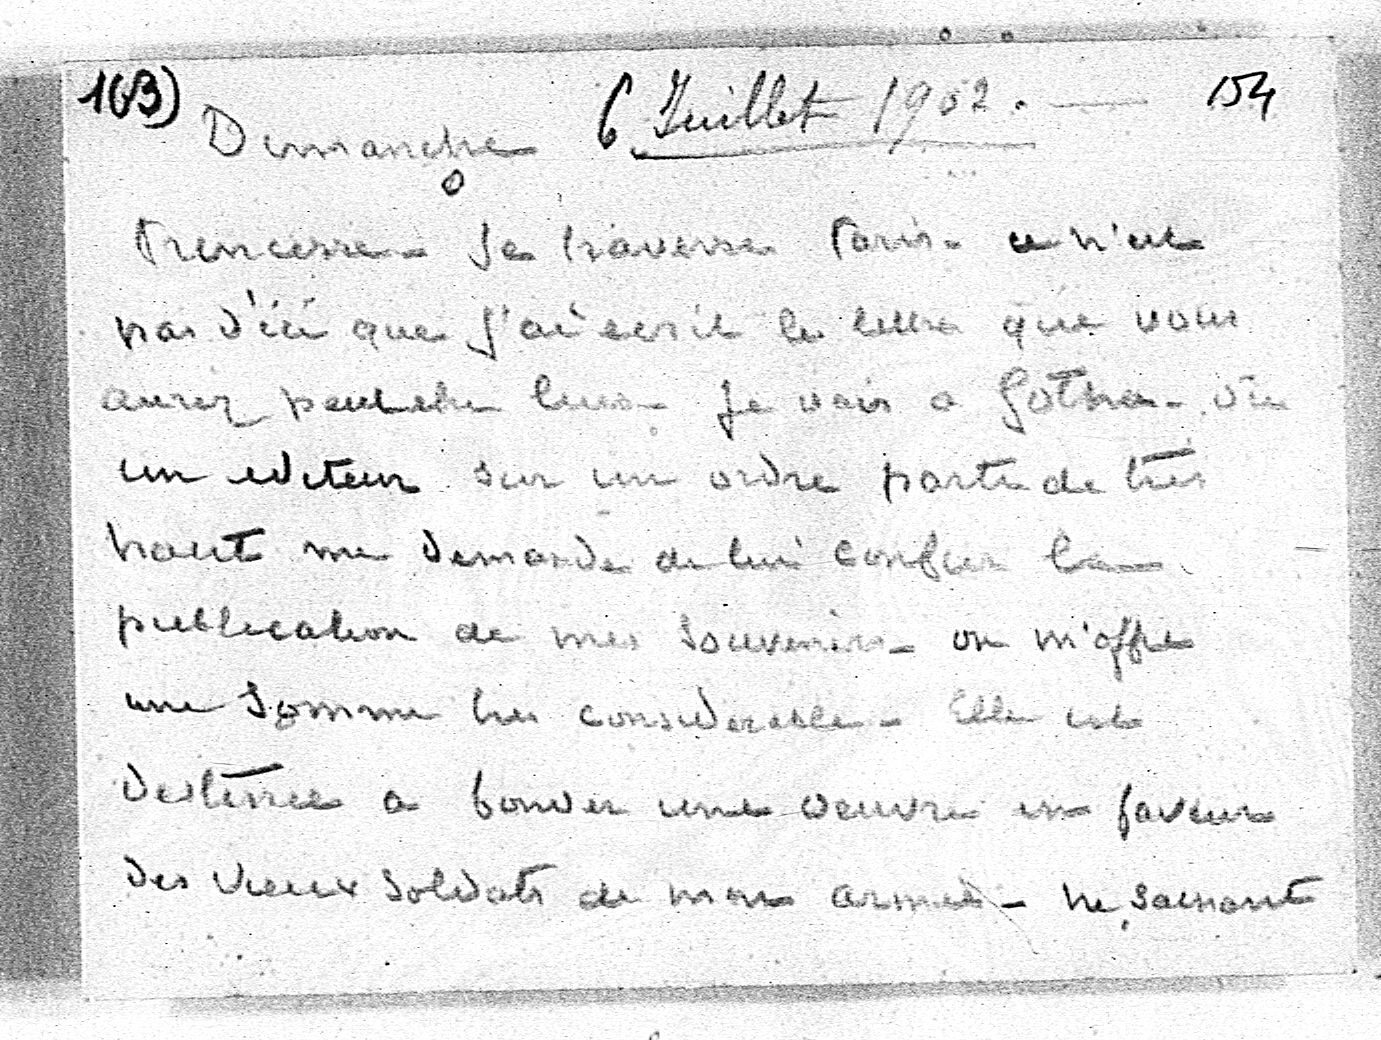 163) Dimanche 6 Juillet 1902. — 154
Princesse - Je traverse Paris - ce n'est
pas d'ici que j'ai ecrit les lettres que vous
aurez peut etre lues - Je vais a Gotha - où
un editeur sur un ordre parti de très
haut me demande de lui confier la
publication de mes souvenirs - on m'offre
une somme tres considerable - Elle est
destinée a fonder une oeuvre en faveur
des vieux soldats de mon armée - ne sachant